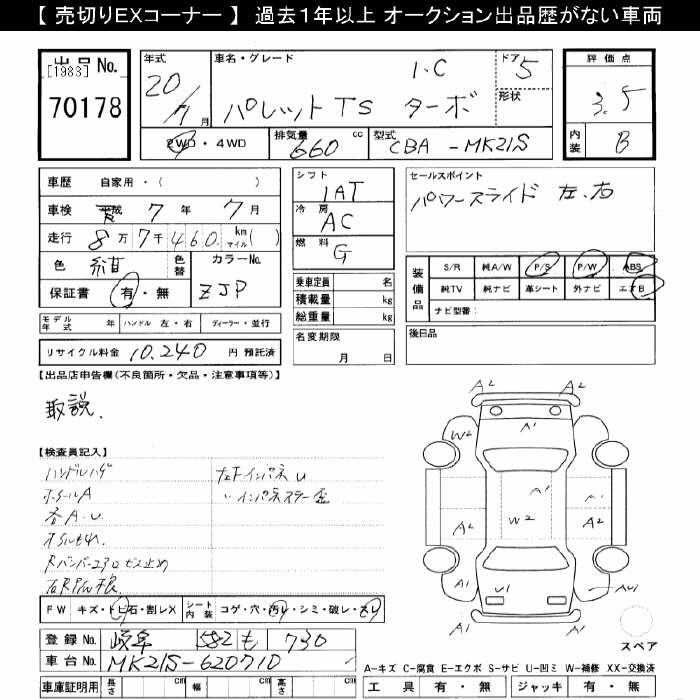 【 売切りEXコーナー 】 過去１年以上 オークション出品歴がない車両
出品 No.
[1983]
70178
年式
20/7月
車名・グレード
I.C
パレット TS ターボ
ドア 5
形状
評価点
3.5
内装 B
2WD・4WD
排気量 660 cc
型式 CBA -MK21S
車歴 自家用・( )
車検 平成 7 年 7 月
走行 8万7千460 km マイル( )
色 紺
色替
カラーNo. ZJP
保証書 有・無
シフト 1AT
冷房 AC
燃料 G
乗車定員 名
積載量 kg
総重量 kg
セールスポイント
パワースライド 左、右
装備品
S/R 純A/W P/S P/W ABS
純TV 純ナビ 革シート 外ナビ エアB
ナビ型番:
モデル年式 年 ハンドル 左・右 ディーラー・並行
名変期限 月 日
後日品
リサイクル料金 10,240 円 預託済
【出品店申告欄(不良箇所・欠品・注意事項等)】
取説.
【検査員記入】
ハンドルハゲ
ホイールA
各A.U.
オイルもれ
左下インパネU
〃インパネステー歪
FW キズ・トビ石・割レX
シート内装 コゲ・穴・汚レ・シミ・破レ・スレ
登録 No. 岐阜 582 も 730
車台 No. MK21S-620710
車庫証明用 長さ cm 幅 cm 高さ cm
A2
A2
W2
A1
A2
A1
A2
W2
A2
A1
U1
A1
AU1
A1
A1
スペア
A-キズ C-腐食 E-エクボ S-サビ U-凹ミ W-補修 XX-交換済
工具 有・無 ジャッキ 有・無